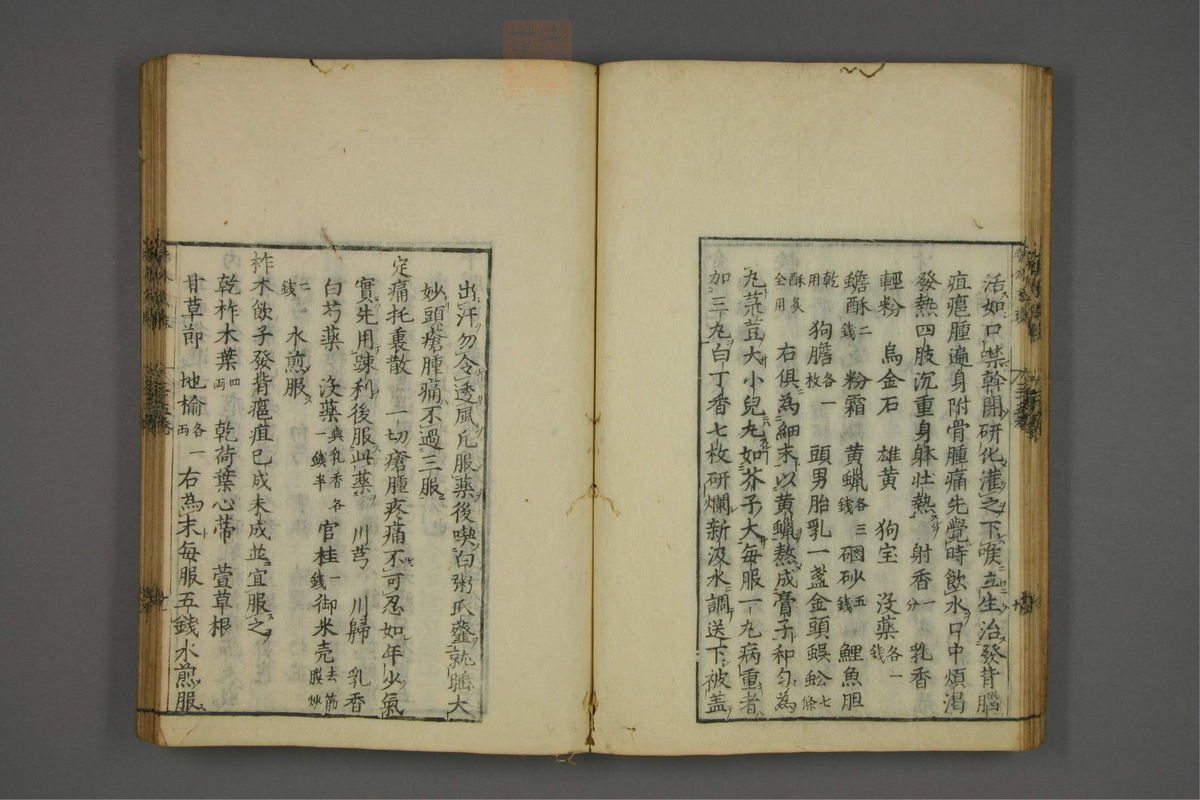 活如口禁幹開研化灌之下喉立生治發背腦
疽瘟腫遍身附骨腫痛先覺時飲水口中煩渴
發熱四肢沉重身躰壮熱 射香一分 乳香
輕粉 烏金石 雄黄 狗宝 没藥各一錢
蟾酥二錢 粉霜 黄蝋各三錢 硇砂五錢 鯉魚胆
乾用 狗膽各一枚 頭男胎乳一盞金頭蜈蚣七條
酥炙全用 右俱為細末以黄蝋熬成膏子和匀為
丸菉荳大小兒丸如芥子大毎服一丸病重者
加三丸白丁香七枚研爛新汲水調送下被盖
出汗勿令透風凡服藥後喫白粥瓜虀就睡大
妙頭瘡腫痛不過三服
定痛托裏散 一切瘡腫疼痛不可忍如年少氣
實先用踈利後服此藥 川芎 川歸 乳香
白芍藥 没藥與乳香各一錢半 官桂一錢 御米壳去筋膜炒
二錢 水煎服
柞木飲子發背瘟疽已成未成並宜服之
乾柞木葉四両 乾荷葉心蒂 萱草根
甘草節 地榆各一両 右為末毎服五錢水煎服